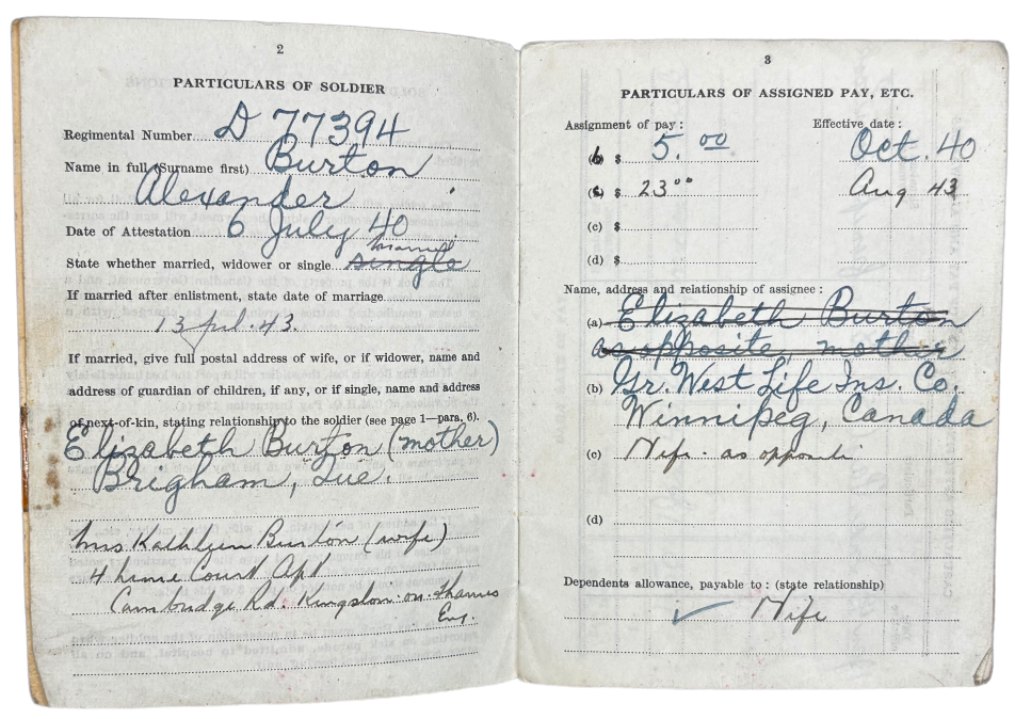 2
PARTICULARS OF SOLDIER
Regimental Number D 77394
Name in full (Surname first) Burton
Alexander
Date of Attestation 6 July 40
married
State whether married, widower or single single
If married after enlistment, state date of marriage
43.
If married, give full postal address of wife, or if widower, name and
address of guardian of children, if any, or if single, name and address
of next-of-kin, stating relationship to the soldier (see page 1—para. 6).
Elizabeth Burton (mother)
Brigham, Que.
Mrs Kathleen Burton (wife)
4 Court Apt
Cambridge Rd. Kingston-on-Thames
Eng.
3
PARTICULARS OF ASSIGNED PAY, ETC.
Assignment of pay: Effective date:
$ 5.00 Oct. 40
$ 23.00 Aug 43
(c) $
(d) $
Name, address and relationship of assignee:
(a) Elizabeth Burton
as opposite, mother
(b) Gr. West Life Ins. Co.
Winnipeg, Canada
(c) Wife. as opposite
(d)
Dependents allowance, payable to: (state relationship)
✓ Wife